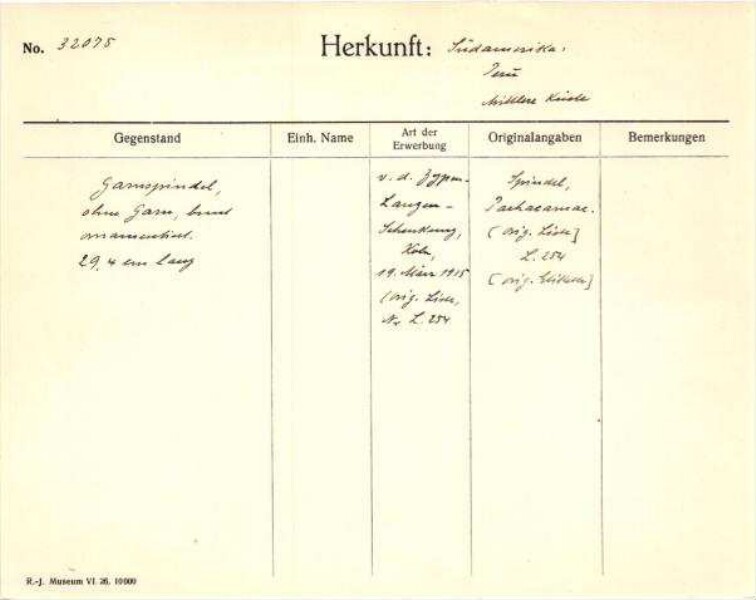 No. 32075
Herkunft: Südamerika.
Peru
Mittlere Küste
Gegenstand
Einh. Name
Art der
Erwerbung
Originalangaben
Bemerkungen
Garnspindel,
ohne Garn, bunt
ornamentiert.
29,4 cm lang
v. d. Zypen-
Langen-
Schenkung,
Köln,
19. März 1915
(orig. Liste,
Nr L. 254
Spindel,
Pachacamac.
(orig. Liste]
L. 254
[orig. Etikette]
R.-J. Museum VI 26. 10000